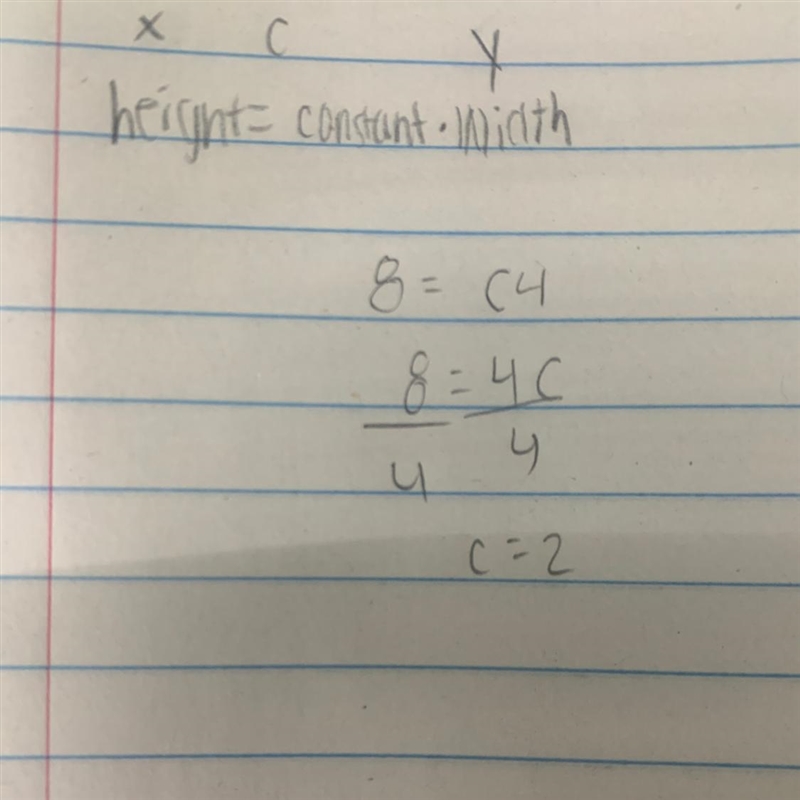 x c y
height = constant · width
8 = c4
8 = 4c
4 4
c = 2